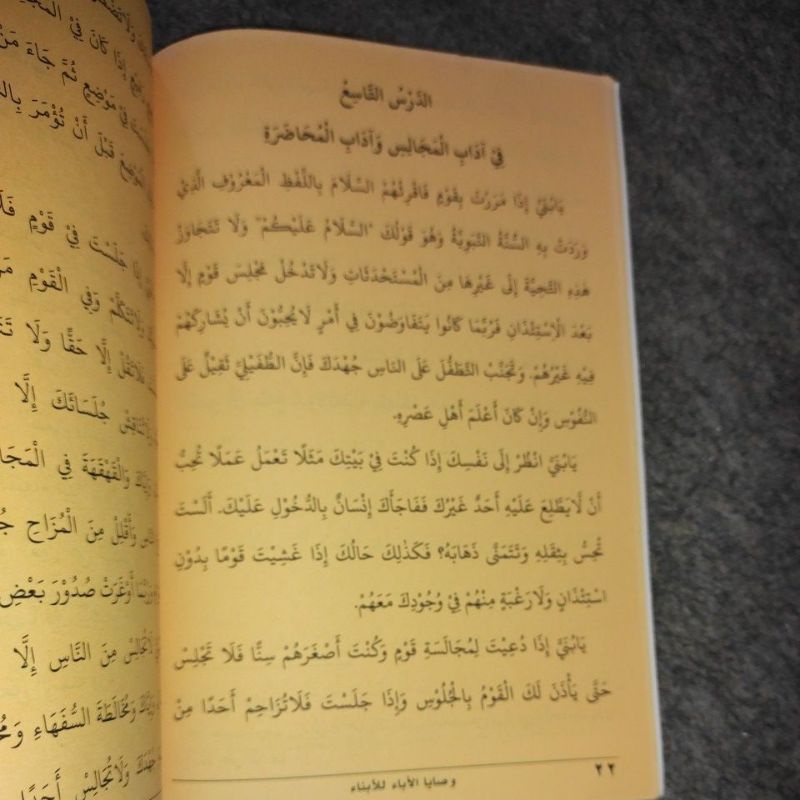 الدَّرْسُ التَّاسِعُ
فِيْ آدَابِ الْمَجَالِسِ وَآدَابِ الْمُحَاضَرَةِ
يَابُنَيَّ إِذَا مَرَرْتَ بِقَوْمٍ فَاقْرِئْهُمُ السَّلَامَ بِاللَّفْظِ الْمَعْرُوْفِ الَّذِيْ
وَرَدَتْ بِهِ السُّنَّةُ النَّبَوِيَّةُ وَهُوَ قَوْلُكَ "السَّلَامُ عَلَيْكُمْ" وَلَا تَتَجَاوَزْ
هَذِهِ التَّحِيَّةَ إِلَى غَيْرِهَا مِنَ الْمُسْتَحْدَثَاتِ وَلَاتَدْخُلْ مَجْلِسَ قَوْمٍ إِلَّا
بَعْدَ الْاِسْتِئْذَانِ فَرُبَّمَا كَانُوا يَتَفَاوَضُوْنَ فِي أَمْرٍ لَايُحِبُّوْنَ أَنْ يُشَارِكَهُمْ
فِيْهِ غَيْرُهُمْ. وَتَجَنَّبْ التَّطَفُّلَ عَلَى النَّاسِ جُهْدَكَ فَإِنَّ الطُّفَيْلِيَّ ثَقِيْلٌ عَلَى
النُّفُوْسِ وَإِنْ كَانَ أَعْلَمَ أَهْلِ عَصْرِهِ.
يَابُنَيَّ انْظُرْ إِلَى نَفْسِكَ إِذَا كُنْتَ فِيْ بَيْتِكَ مَثَلًا تَعْمَلُ عَمَلًا تُحِبُّ
أَنْ لَايَطَّلِعَ عَلَيْهِ أَحَدٌ غَيْرُكَ فَفَاجَأَكَ إِنْسَانٌ بِالدُّخُوْلِ عَلَيْكَ. أَلَسْتَ
تُحِسُّ بِثِقَلِهِ وَتَتَمَنَّى ذَهَابَهُ؟ فَكَذَلِكَ حَالُكَ إِذَا غَشِيْتَ قَوْمًا بِدُوْنِ
اسْتِئْذَانٍ وَلَارَغْبَةٍ مِنْهُمْ فِيْ وُجُوْدِكَ مَعَهُمْ.
يَابُنَيَّ إِذَا دُعِيْتَ لِمُجَالَسَةِ قَوْمٍ وَكُنْتَ أَصْغَرَهُمْ سِنًّا فَلَا تَجْلِسْ
حَتَّى يَأْذَنَ لَكَ الْقَوْمُ بِالْجُلُوْسِ وَإِذَا جَلَسْتَ فَلَاتُزَاحِمْ أَحَدًا مِنْ
٢٢
وصايا الأباء للأبناء
إِذَا كَانَ فِيْ
مَوْضِعٍ ثُمَّ جَاءَ
قَبْلَ أَنْ تُؤْمَرَ
جَلَسْتَ فِيْ قَوْمٍ
وَفِي الْقَوْمِ
إِلَّا حَقًّا وَلَا
جُلَسَائِكَ إِلَّا
وَالْقَهْقَهَةَ فِي
وَأَقْلِلْ مِنَ الْمُزَاحِ
أَوْغَرَتْ صُدُوْرَ بَعْضِ
مِنَ النَّاسِ إِلَّا
وَمُخَالَطَةَ السُّفَهَاءِ
جُهْدَكَ وَلَاتُجَالِسْ أَحَدًا